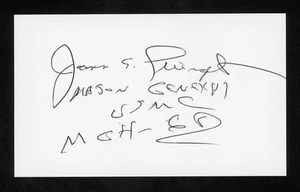 James E. Livingston
MAJOR GENERAL
USMC
MOH - 68